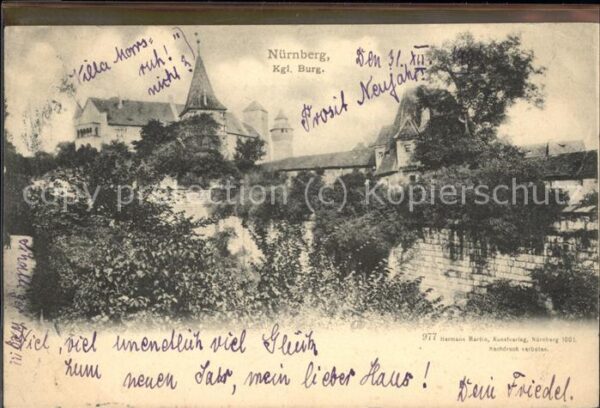 Nürnberg,
Kgl. Burg.
"Villa Morrs-
ruh!"
nicht?
Den 31. XII
Prosit Neujahr!
copy protection © Kopierschutz
977 Hermann Martin, Kunstverlag, Nürnberg 1901.
Nachdruck verboten.
Viel, viel unendlich viel Glück
zum neuen Jahr, mein lieber Haus!
Dein Friedel.